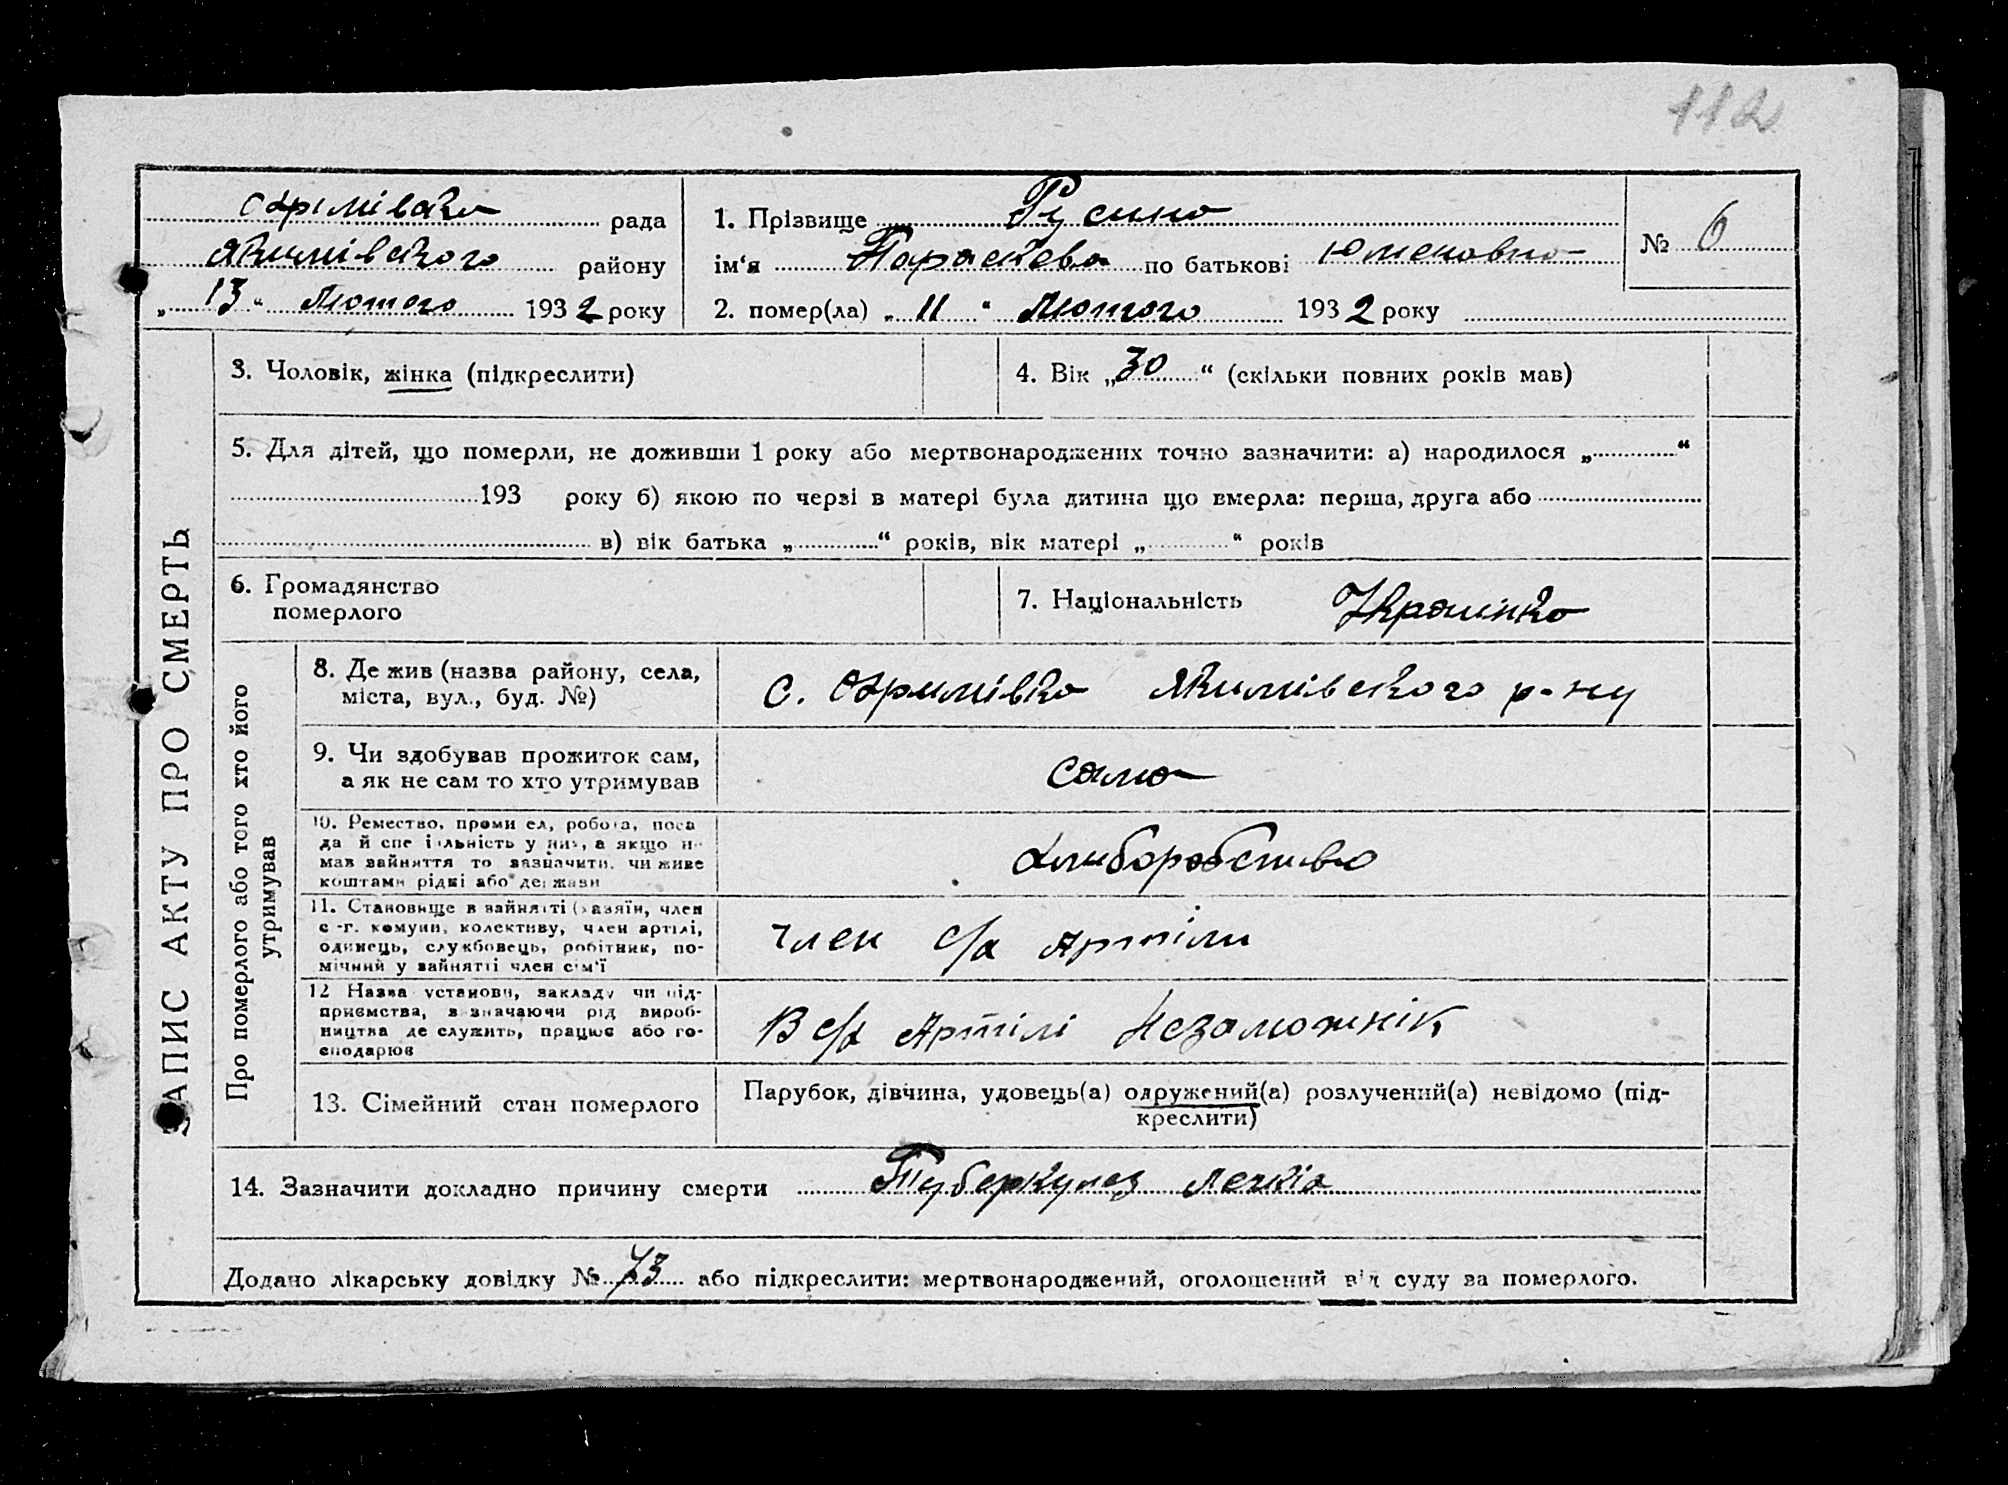 112
рада
Якимівского району
„13“ Лютого 1932 року
1. Прізвище Русина
ім‘я Параскева по батькові
№ 6
2. помер(ла) „11“ Лютого 1932 року
ЗАПИС АКТУ ПРО СМЕРТЬ
3. Чоловік, жінка (підкреслити)
4. Вік „30“ (скільки повних років мав)
5. Для дітей, що померли, не доживши 1 року або мертвонароджених точно зазначити: а) народилося „ “
193 року б) якою по черзі в матері була дитина що вмерла: перша, друга або
в) вік батька „ “ років, вік матері „ “ років
6. Громадянство
померлого
7. Національність Украинка
Про померлого або того хто його
утримував
8. Де жив (назва району, села,
міста, вул., буд. №)
с. Якимівского р-ну
9. Чи здобував прожиток сам,
а як не сам то хто утримував
сама
10. Ремество, промисел, робота, поса
да й спеціяльність у них, а якщо н
мав зайняття то зазначити, чи живе
коштами рідні або держави
Хлиборобство
11. Становище в зайнятті (хазяїн, член
с.-г. комуни, колективу, член артілі,
одинець, службовець, робітник, по-
мічний у зайнятті член сім‘ї
Член с/х Артіли
12 Назва установи, закладу чи під-
приємства, зазначаючи рід вироб-
ництва де служить, працює або го-
сподарює
В с/х Артілі Незаможнік
13. Сімейний стан померлого
Парубок, дівчина, удовець(а) одружений(а) розлучений(а) невідомо (під-
креслити)
14. Зазначити докладно причину смерти Туберкулез Легкіх
Додано лікарську довідку № 73 або підкреслити: мертвонароджений, оголошений від суду за померлого.